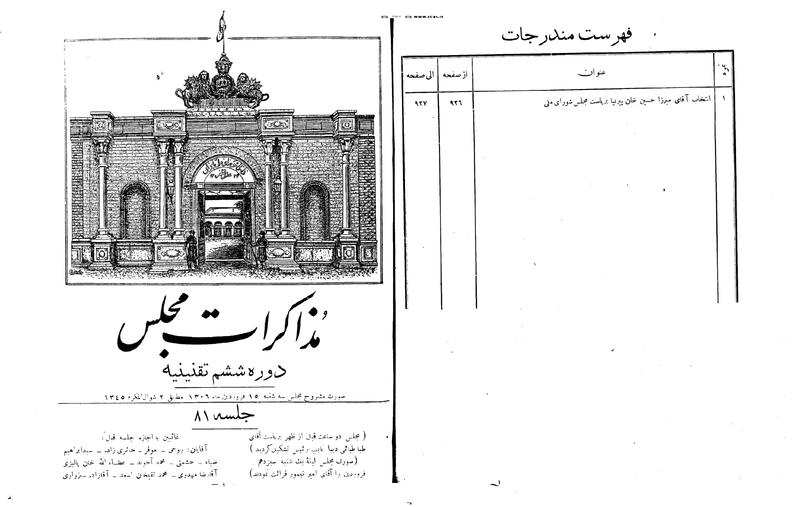 فهرست مندرجات
نمره
عنوان
از صفحه
الی صفحه
۱
انتخاب آقای میرزا حسین خان پیرنیا بریاست مجلس شورای ملی
۹۲۶
۹۲۷
مذاکرات مجلس
دوره ششم تقنینیه
صورت مشروح مجلس سه شنبه ۱۵ فروردین ماه ۱۳۰۶ مطابق ۲ شوال المکرم ۱۳۴۵
جلسه ۸۱
( مجلس دو ساعت قبل از ظهر بریاست آقای
طباطبائی دیبا نایب رئیس تشکیل گردید )
(صورت مجلس لیلهٔ یک شنبه سیزدهم
فروردین را آقای امیر تیمور قرائت نمودند)
غائبین با اجازه جلسه قبل:
آقایان: روحی ـ موقر ـ حائری زاده ـ سید ابراهیم
ضیاء ـ حشمتی ـ محمد آخوند ـ عطاء الله خان پالیزی
آقا رضا مهدوی ـ محمد تقیخان اسعد ـ آقازاده سبزواری